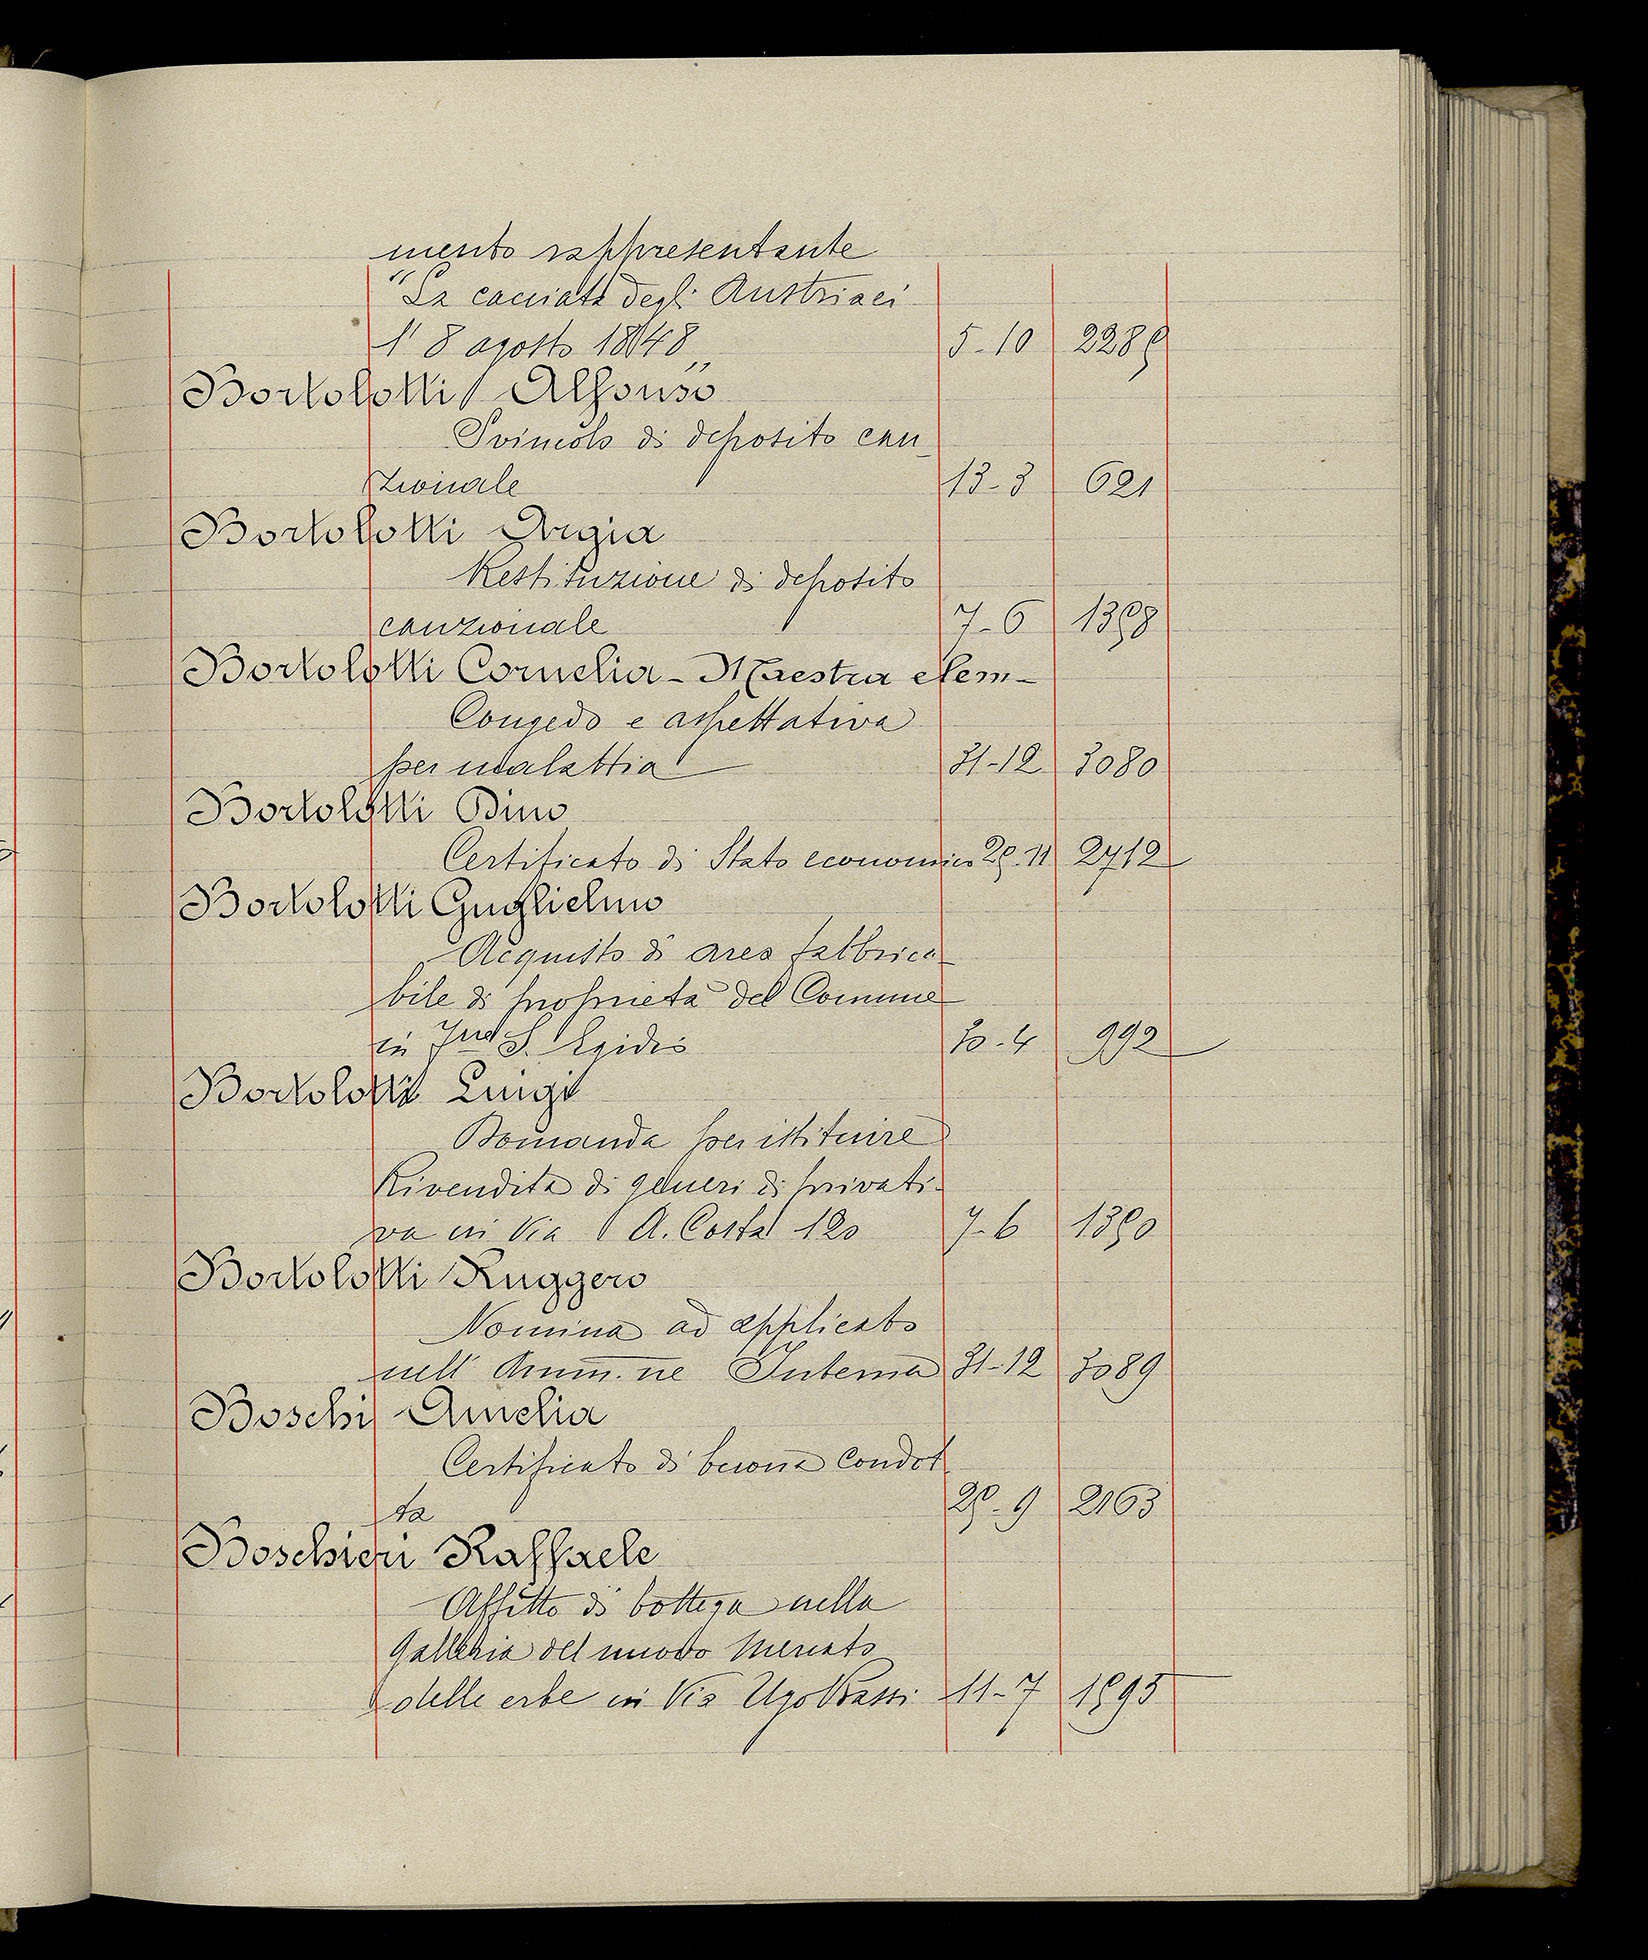 mento rappresentante
"La cacciata degli Austriaci
l' 8 agosto 1848" 5-10 2285
Bortolotti Alfonso
Svincolo di deposito cau-
zionale 13-3 621
Bortolotti Argia
Restituzione di deposito
cauzionale 7-6 1358
Bortolotti Cornelia - Maestra elem-
Congedo e aspettativa
per malattia 31-12 3080
Bortolotti Dino
Certificato di Stato economico 25-11 2712
Bortolotti Guglielmo
Acquisto di area fabbrica-
bile di proprietà del Comune
in S. Egidio 30-4 992
Bortolotti Luigi
Domanda per istituire
Rivendita di generi di privati-
va in Via A. Costa 120 7-6 1350
Bortolotti Ruggero
Nomina ad applicato
nell' Amm.ne Interna 31-12 3089
Boschi Amelia
Certificato di buona condot
ta 25-9 2163
Boschieri Raffaele
Affitto di bottega nella
Galleria del nuovo Mercato
delle erbe in Via Ugo Bassi 11-7 1595